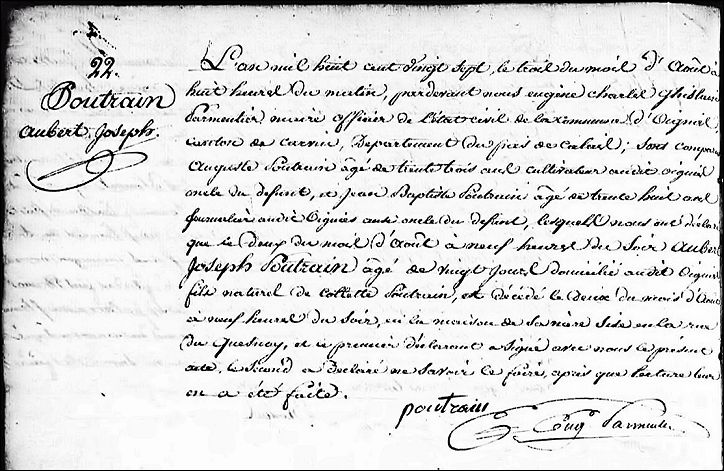 22.
Poutrain
Aubert Joseph.
L'an mil huit cent vingt sept, le trois du mois d'Août à
huit heures du matin, pardevant nous eugène charles Ghislain
Parmentier maire officier de l'état civil de la commune d'Oignies,
canton de carvin, Département du pas de calais; sont comparus
Auguste Poutrain âgé de trente trois ans cultivateur audit oignies
oncle du defunt, et Jean Baptiste Poutrain âgé de trente huit ans
audit Oignies aussi oncle du defunt, lesquels nous ont déclaré
que le deux du mois d'Août à neuf heures du soir Aubert
Joseph Poutrain âgé de vingt jours domicilié audit Oignies
fils naturel de collette Poutrain, est décédé le deux du mois d'Août
à neuf heures du soir, en la maison de sa mère sise en la rue
du quesnoy, et le premier déclarant a signé avec nous le présent
acte, le second a déclaré ne savoir le faire, après que lecture leur
en a été faite.
poutrain
Eug Parmentier